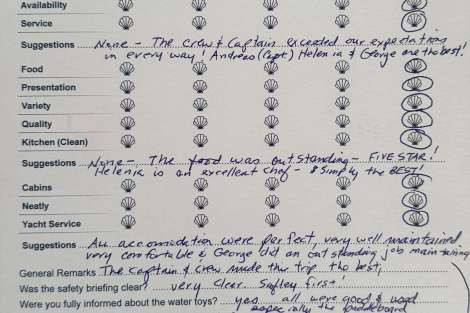 Availability
Service
Suggestions None - The crew & Captain exceeded our expectations
in every way! Andreas (Capt.) Helenia & George are the best!
Food
Presentation
Variety
Quality
Kitchen (Clean)
Suggestions None - The food was outstanding - FIVE STAR!
Helenia is an excellent chef - & Simply the BEST!
Cabins
Neatly
Yacht Service
Suggestions All accomodation were perfect, very well maintained,
very comfortable & George did an outstanding job maintaining
General Remarks The captain & Crew made this trip the best,
Was the safety briefing clear? very clear. Safley first!
Were you fully informed about the water toys? yes all were good & used
especially the paddleboard